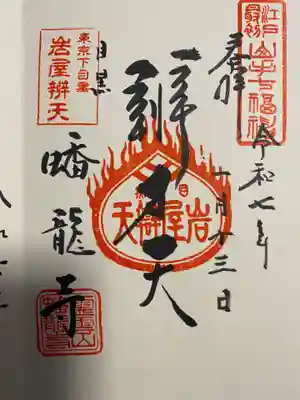 江戸最初
山手七福神
奉拝
令和七年
十月十三日
辨才天
岩屋辨天
東京下目黒
岩屋辨天
目黒
蟠龍寺